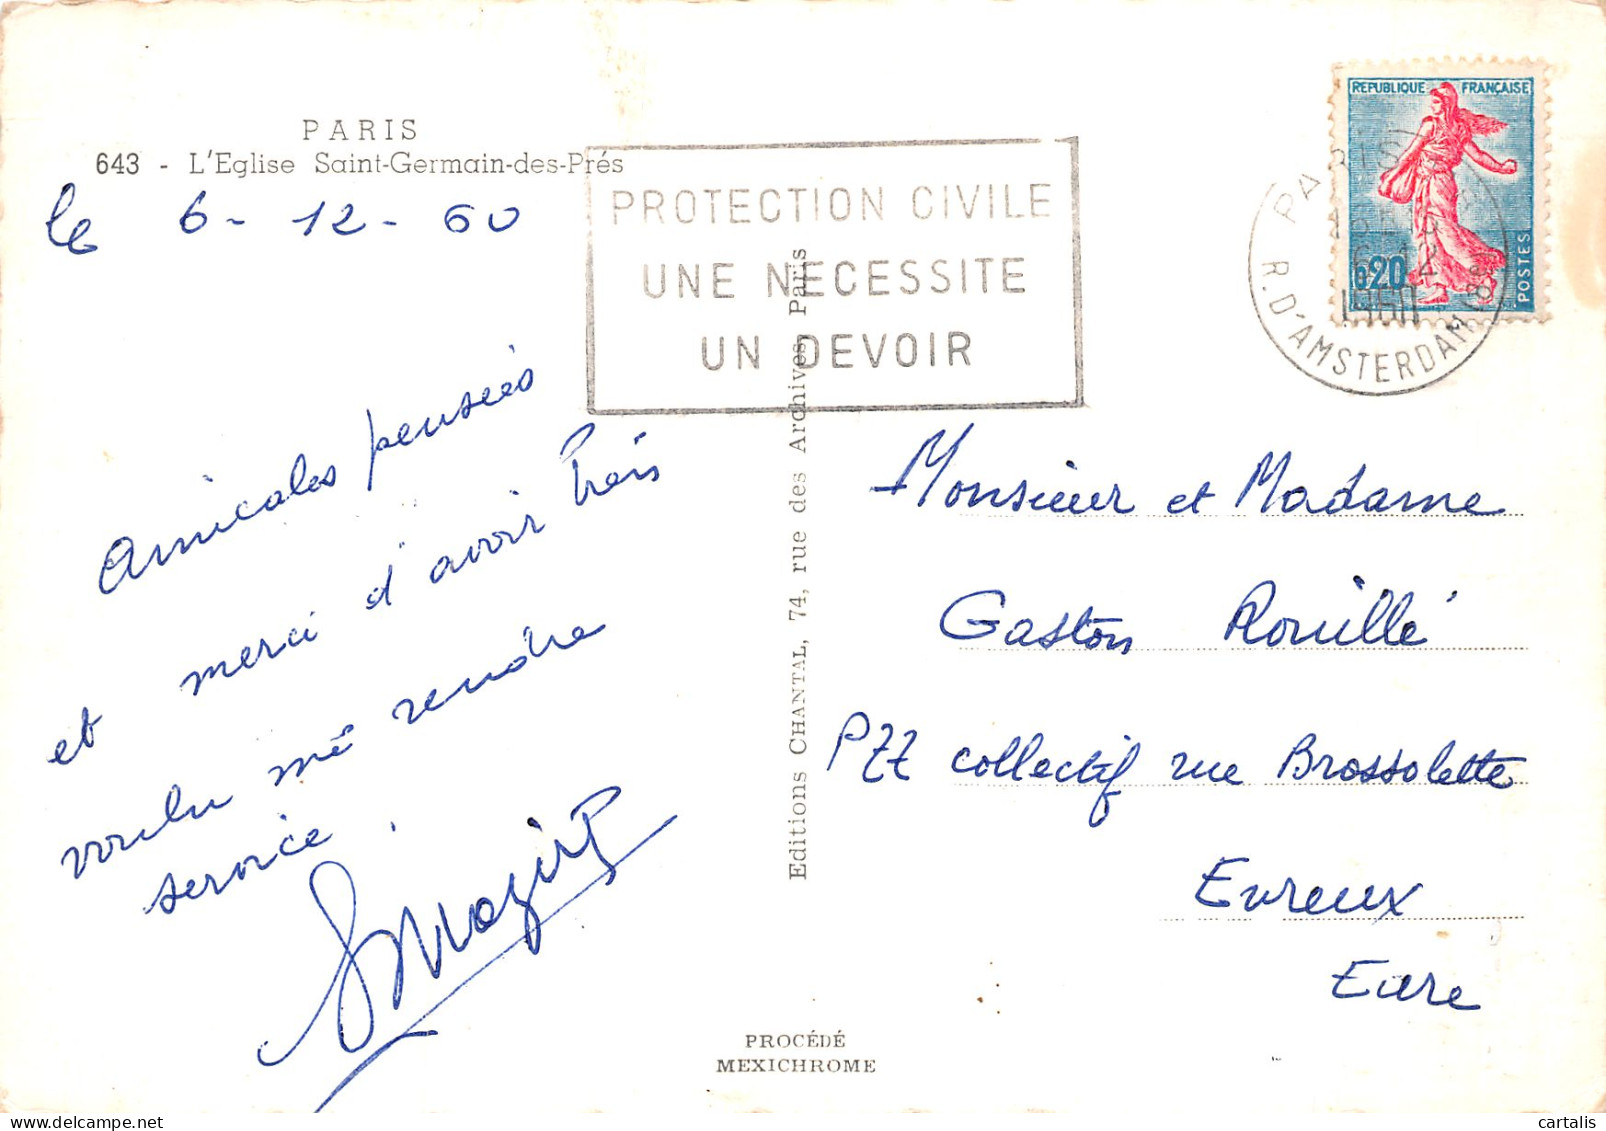 PARIS
643 - L'Eglise Saint-Germain-des-Prés
le 6-12-60
Amicales pensées
et merci d'avoir très
voulu mé rendre
service.
PROTECTION CIVILE
UNE NECESSITE
UN DEVOIR
Editions CHANTAL, 74, rue des Archives, Paris
REPUBLIQUE FRANÇAISE
0,20
POSTES
PARIS
6-12
1960
R. D'AMSTERDAM
Monsieur et Madame
Gaston Rouillé
PZZ collectif rue Brossolette
Evreux
Eure
PROCÉDÉ
MEXICHROME
cartalis